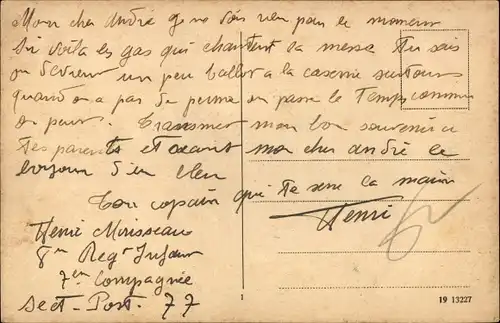 Mon cher André je ne vois rien pour le moment
voila les gas qui chantent la messe tu sais
on devient un peu ballot a la caserne surtout
quand on a pas de perme on passe le temps comme
on peut. Transmet mon bon souvenir a
tes parents et mon cher andré le
bonjour d'un bleu
Ton copain qui te serre la main
Henri
Henri Mirisseau
8em Regt Infant
7em Compagnie
Sect-Post. 77
1
19 13227